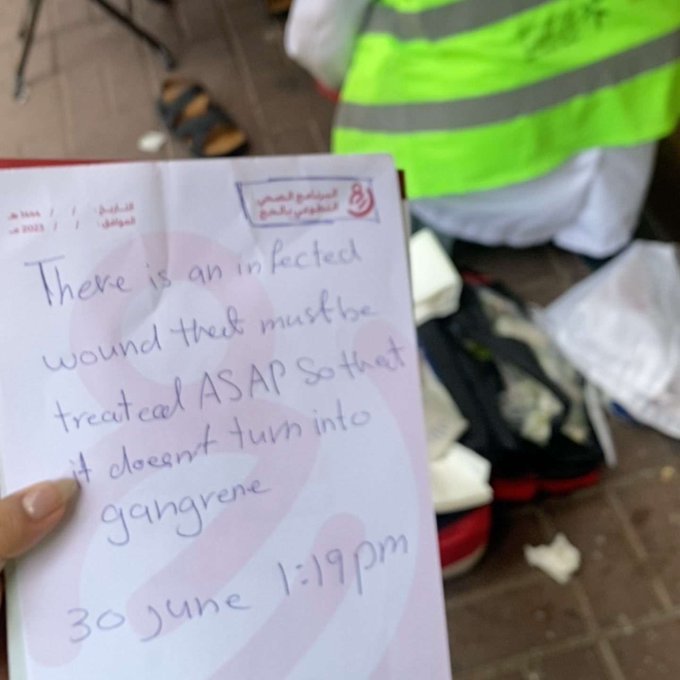 البرنامج الصحي
التطوعي بالحج
التاريخ: / / 1444 هـ
الموافق: / / 2023 مـ
There is an infected
wound that must be
treated ASAP so that
it doesn't turn into
gangrene
30 June 1:19pm